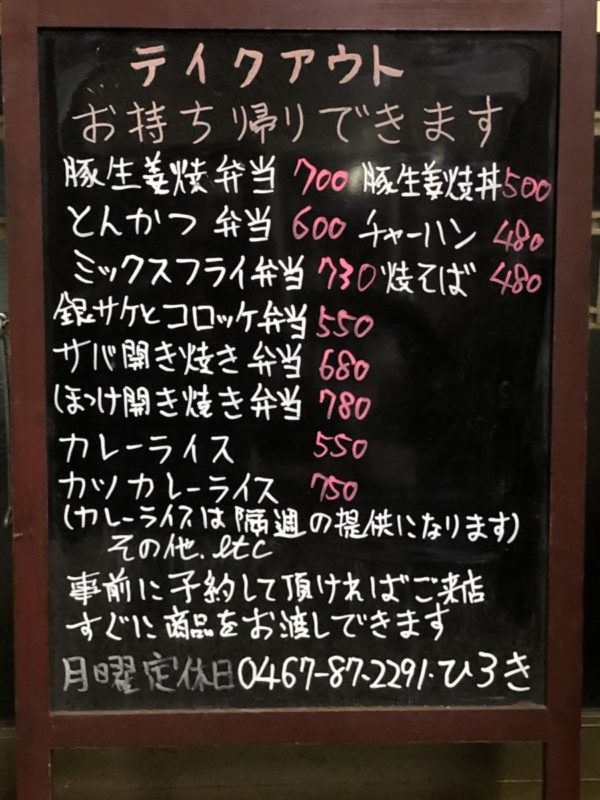 テイクアウト
お持ち帰りできます
豚生姜焼弁当 700 豚生姜焼丼500
とんかつ弁当 600 チャーハン 480
ミックスフライ弁当730 焼そば 480
銀サケとコロッケ弁当550
サバ開き焼き弁当 680
ほっけ開き焼き弁当 780
カレーライス 550
カツカレーライス 750
(カレーライスは隔週の提供になります)
その他.etc
事前に予約して頂ければご来店
すぐに商品をお渡しできます
月曜定休日0467-87-2291.ひろき